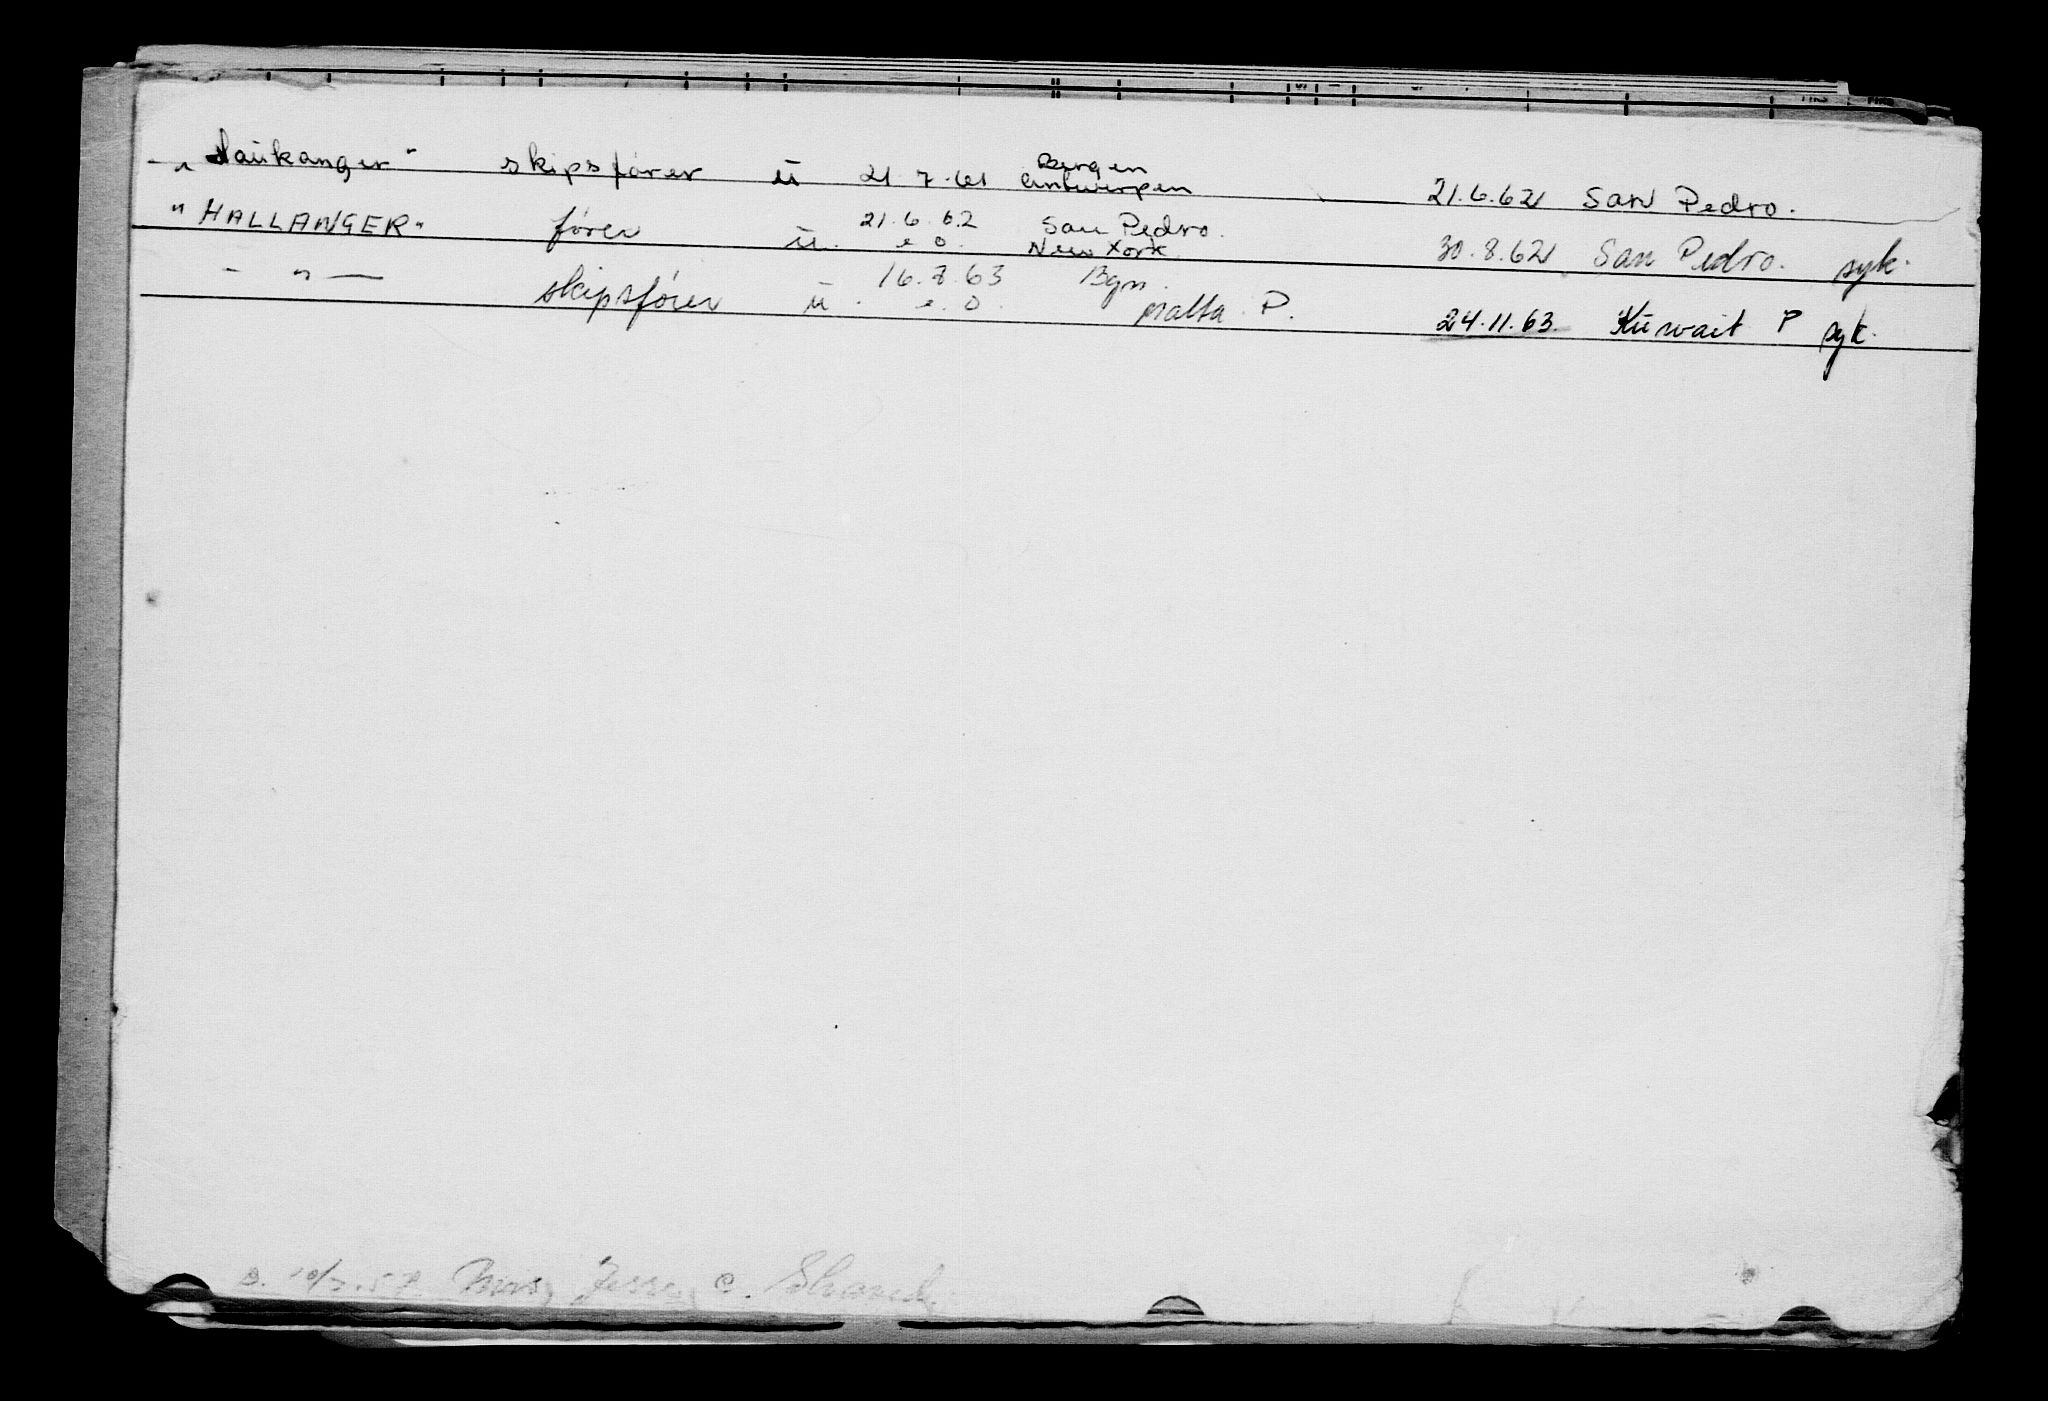 „Haukanger" skipsfører u 21.7.61 Bergen Antwerpen 21.6.62 San Pedro.
"HALLANGER" fører u. 21.6.62 San Pedro. e O. New York 30.8.62 San Pedro. syk.
- " — skipsfører u. 16.7.63 Bgn. e. O. Malta P. 24.11.63. Kuwait P syk.
10/7.57 Mrs, C.